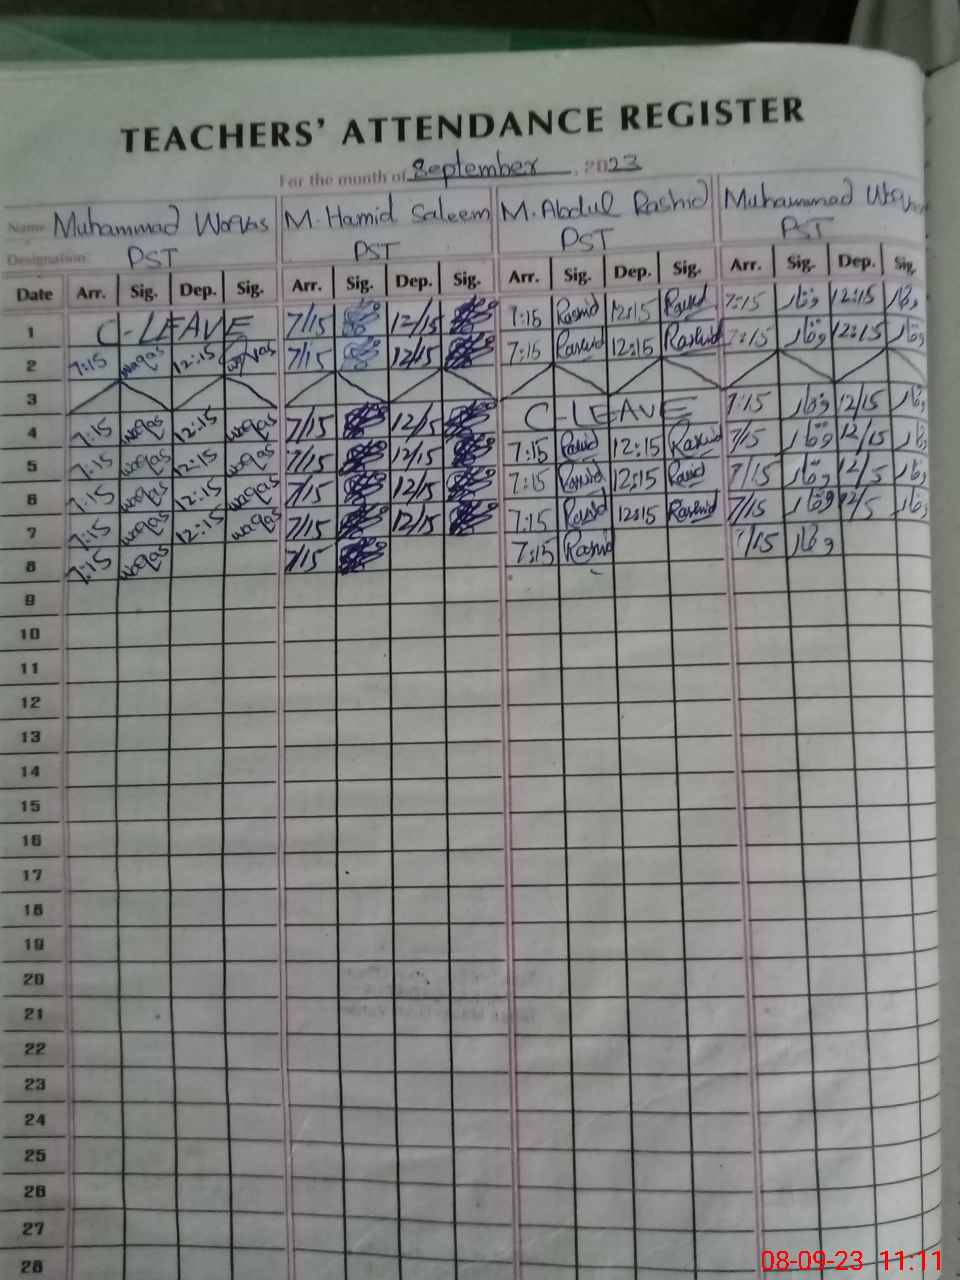 TEACHERS' ATTENDANCE REGISTER
For the month of September, 2023
Name Muhammad Waqas M. Hamid Saleem M. Abdul Rashid Muhammad
Designation: PST PST PST PST
Date Arr. Sig. Dep. Sig. Arr. Sig. Dep. Sig. Arr. Sig. Dep. Sig. Arr. Sig. Dep. Sig.
1 C-LEAVE 7/15 12/15 7:15 Rashid 12:15 Rashid 7:15 وقار 12:15 وقار
2 7:15 waqas 12:15 waqas 7/15 12/15 7:15 Rashid 12:15 Rashid 7:15 وقار 12:15 وقار
3
4 7:15 waqas 12:15 waqas 7/15 12/15 C-LEAVE 7:15 وقار 12/15 وقار
5 7:15 waqas 12:15 waqas 7/15 12/15 7:15 Rashid 12:15 Rashid 7/15 وقار 12/15 وقار
6 7:15 waqas 12:15 waqas 7/15 12/15 7:15 Rashid 12:15 Rashid 7/15 وقار 12/5 وقار
7 7:15 waqas 12:15 waqas 7/15 12/15 7:15 Rashid 12:15 Rashid 7/15 وقار 12/5 وقار
8 7:15 waqas 7/15 7:15 Rashid 7/15 وقار
9
10
11
12
13
14
15
16
17
18
19
20
21
22
23
24
25
26
27
28
08-09-23 11:11